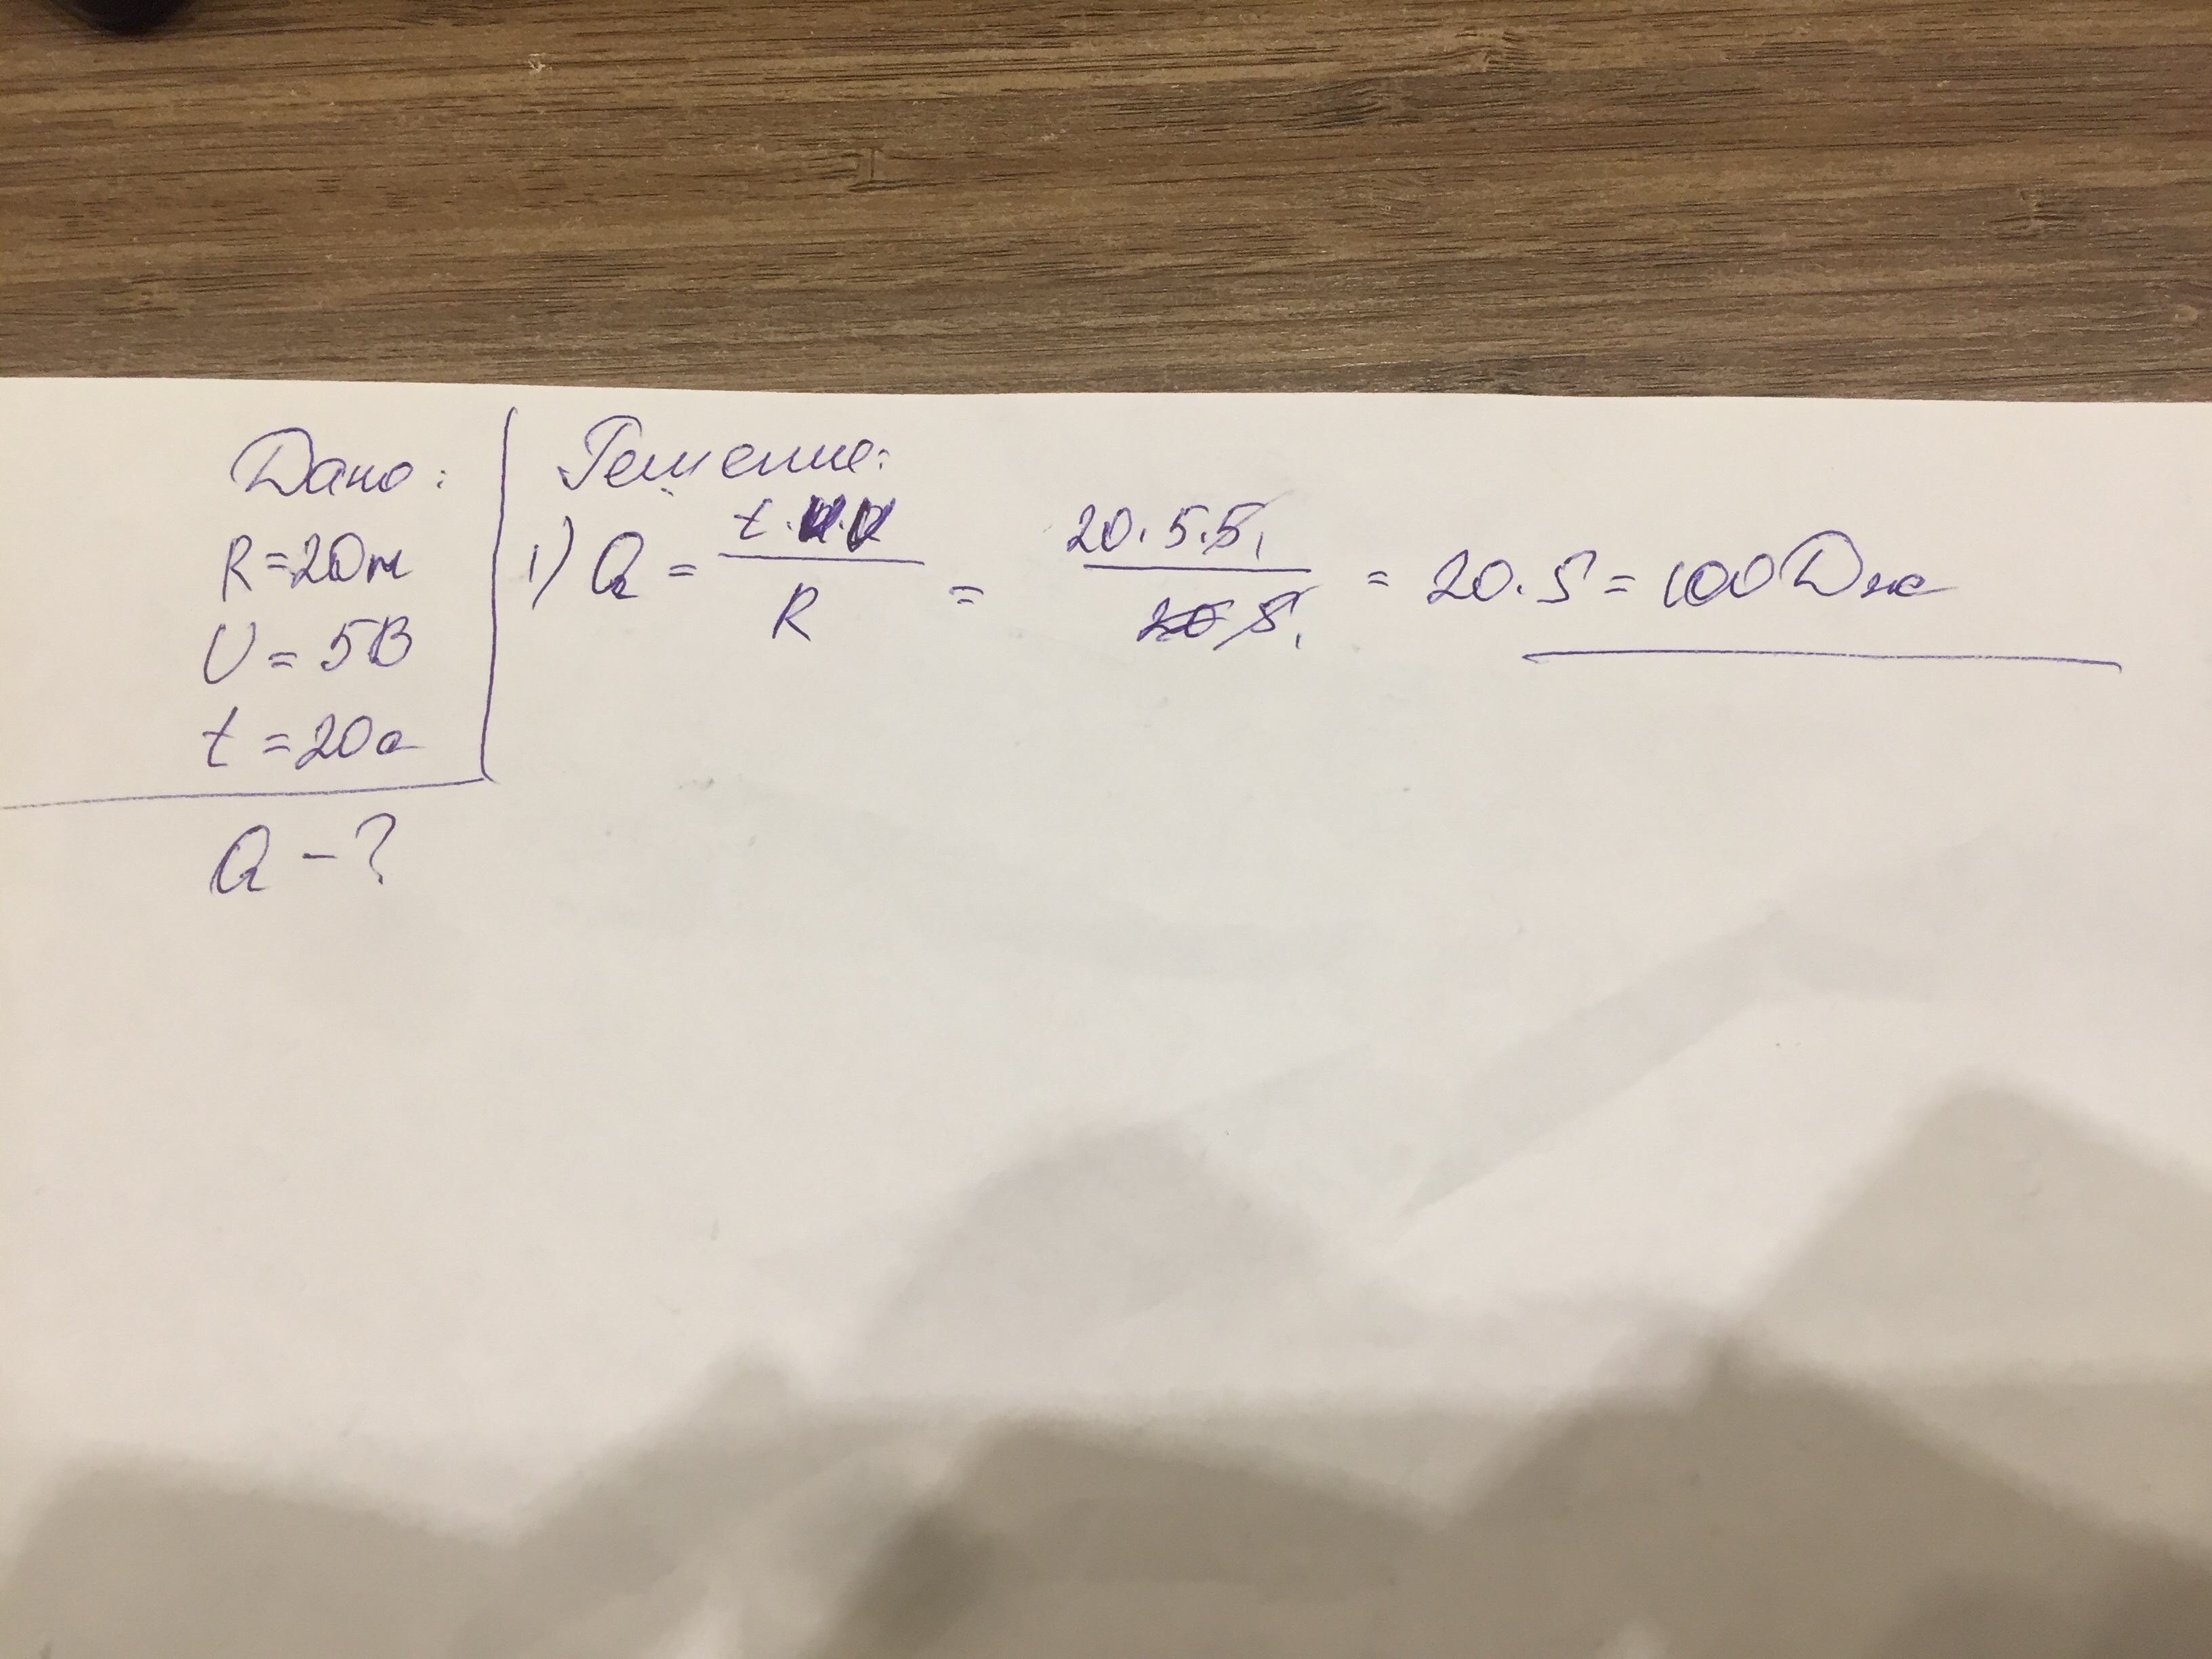 Дано:
R=2Ом
U=5В
t=20с
Q-?
Решение:
1) Q = t·U·U / R = 20·5·5 / 5 = 20·5 = 100Дж